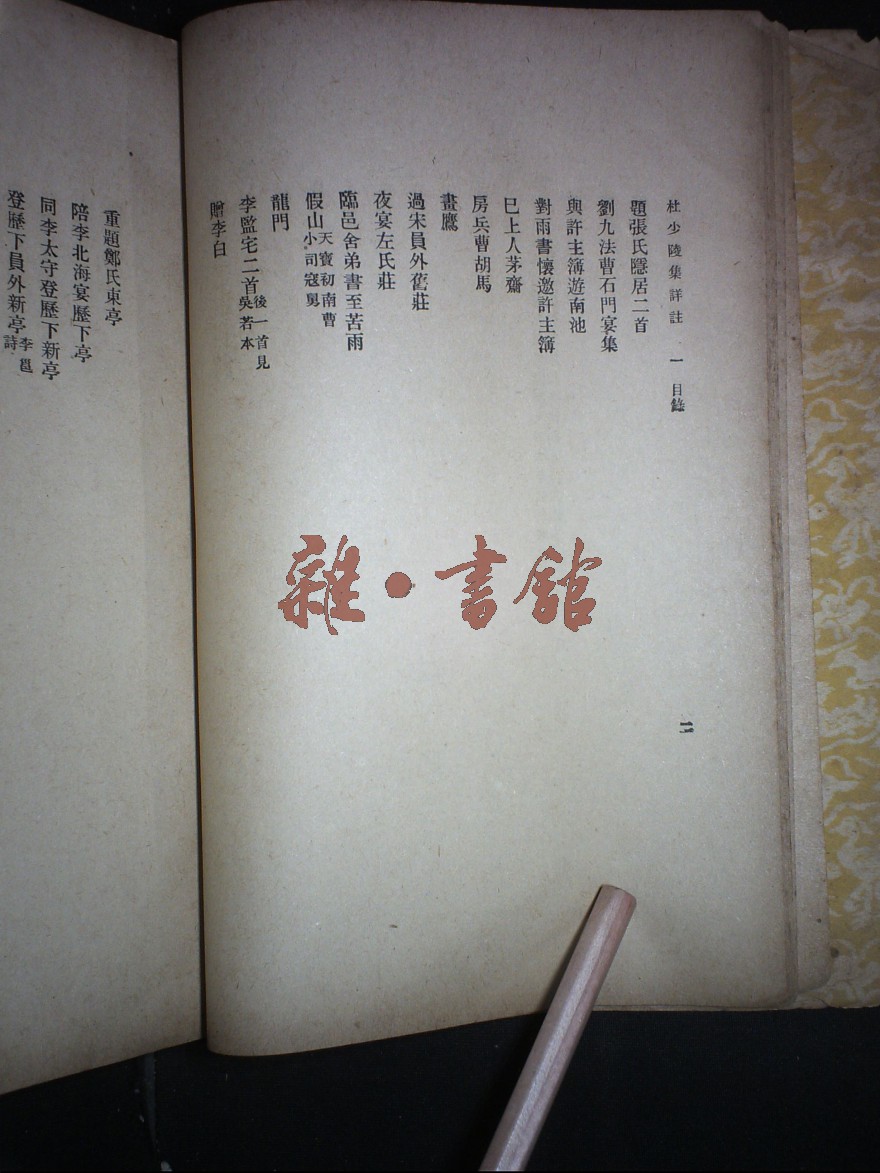 杜少陵集詳註　一　目錄
二
題張氏隱居二首
劉九法曹石門宴集
與許主簿遊南池
對雨書懷邀許主簿
巳上人茅齋
房兵曹胡馬
畫鷹
過宋員外舊莊
夜宴左氏莊
臨邑舍弟書至苦雨
假山天寶初南曹小司寇舅
龍門
李監宅二首後一首見吳若本
贈李白
重題鄭氏東亭
陪李北海宴歷下亭
同李太守登歷下新亭
登歷下員外新亭李邕詩
雜·書館